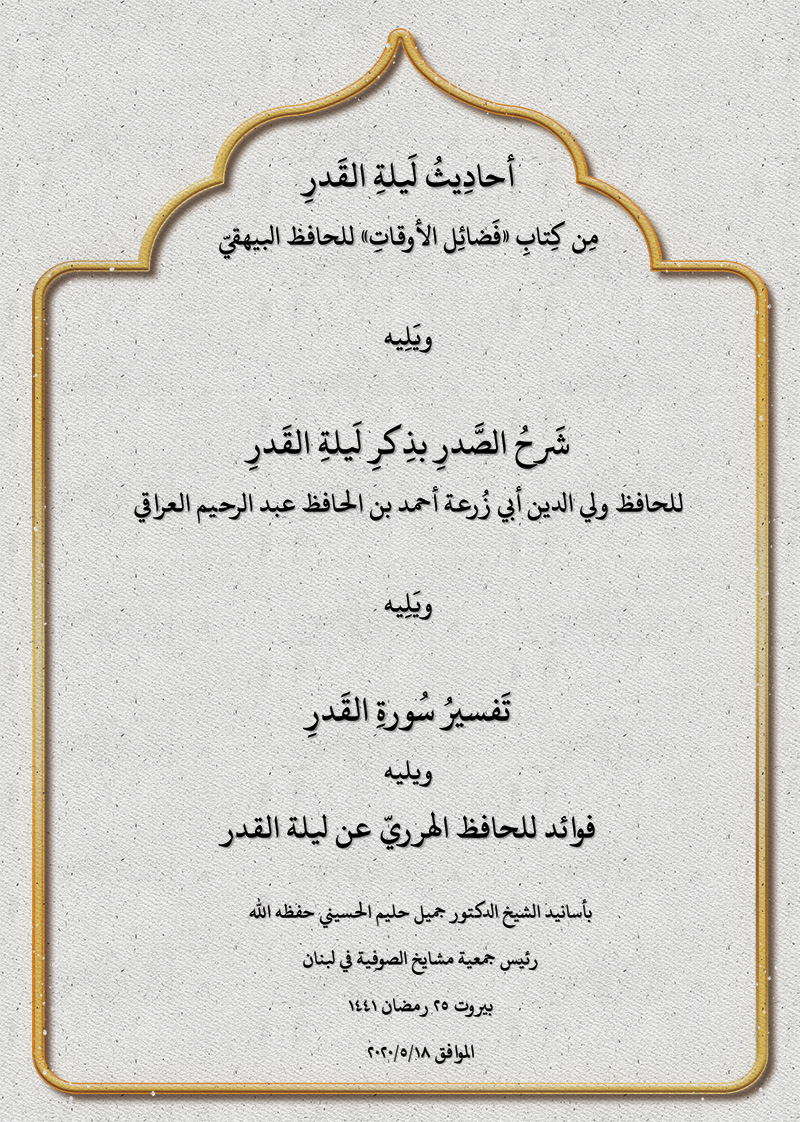 أحادِيثُ لَيلةِ القَدرِ
مِن كِتابِ «فَضائِل الأوقاتِ» للحافظ البيهقيّ
ويَلِيه
شَرحُ الصَّدرِ بذِكرِ لَيلةِ القَدرِ
للحافظ ولي الدين أبي زُرعة أحمد بن الحافظ عبد الرحيم العراقي
ويَلِيه
تَفسيرُ سُورةِ القَدرِ
ويليه
فوائد للحافظ الهرريّ عن ليلة القدر
بأسانيد الشيخ الدكتور جميل حليم الحسيني حفظه الله
رئيس جمعية مشايخ الصوفية في لبنان
بيروت ٢٥ رمضان ١٤٤١
الموافق ٢٠٢٠/٥/١٨